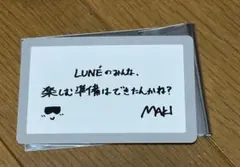 LUNÉのみんな、
楽しむ準備はできたんかね?
MAKI